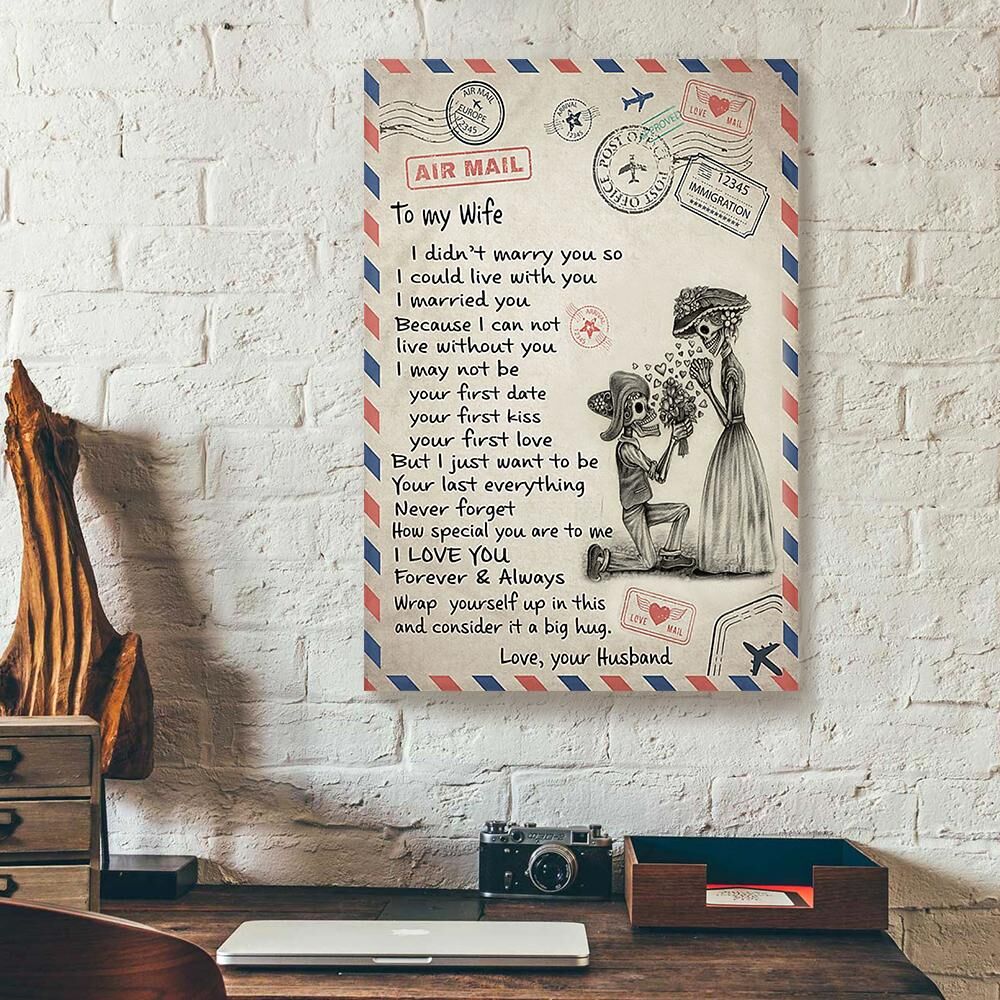 AIR MAIL
EUROPE
12345
ARRIVAL
12345
LOVE MAIL
POST OFFICE
POST OFFICE
12345
IMMIGRATION
AIR MAIL
To my Wife
I didn't marry you so
I could live with you
I married you
Because I can not
live without you
I may not be
your first date
your first kiss
your first love
But I just want to be
Your last everything
Never forget
How special you are to me
I LOVE YOU
Forever & Always
Wrap yourself up in this
and consider it a big hug.
Love, your Husband
ARRIVAL
12345
LOVE MAIL